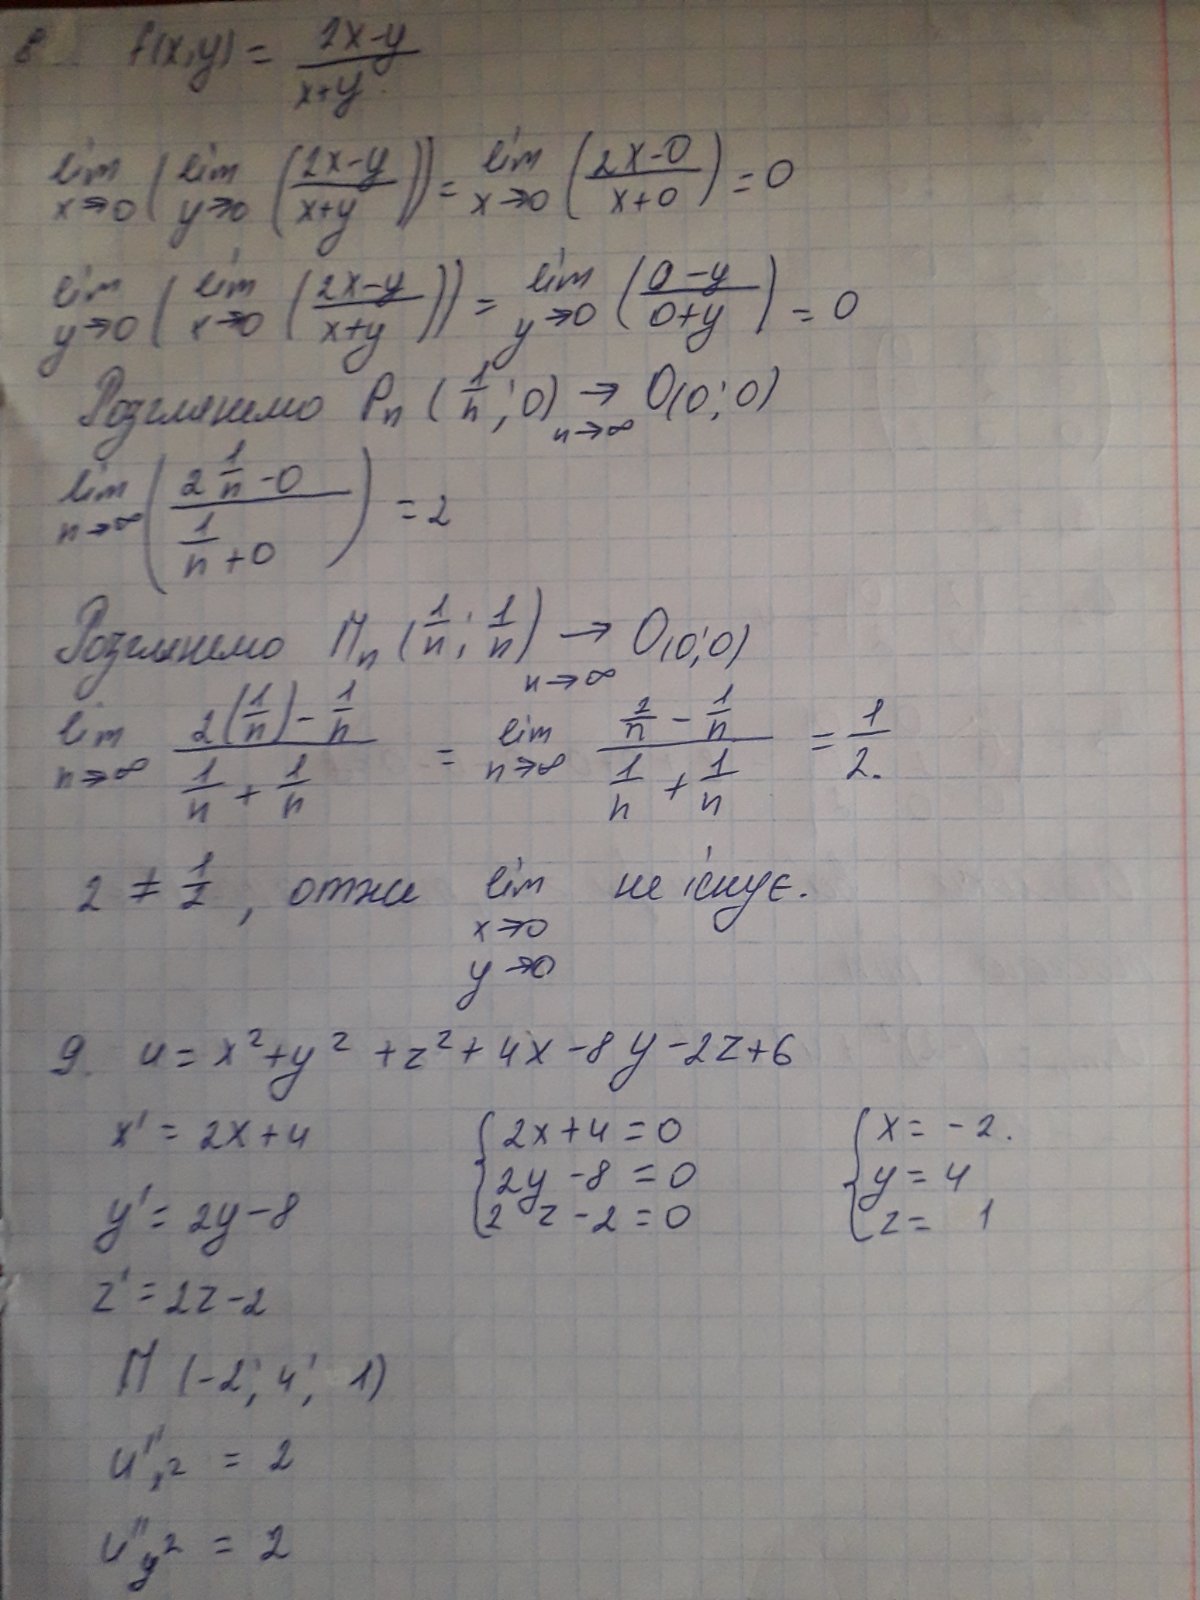 8 f(x,y) = (2x-y)/(x+y)
lim x→0 (lim y→0 ((2x-y)/(x+y))) = lim x→0 ((2x-0)/(x+0)) = 0
lim y→0 (lim x→0 ((2x-y)/(x+y))) = lim y→0 ((0-y)/(0+y)) = 0
Розглянемо Pn (1/n; 0) → n→∞ O(0; 0)
lim n→∞ ((2 1/n - 0)/(1/n + 0)) = 2
Розглянемо Mn (1/n; 1/n) → n→∞ O(0; 0)
lim n→∞ (2(1/n) - 1/n)/(1/n + 1/n) = lim n→∞ (2/n - 1/n)/(1/n + 1/n) = 1/2.
2 ≠ 1/2, отже lim x→0 y→0 не існує.
9. u = x² + y² + z² + 4x - 8y - 2z + 6
x' = 2x + 4 { 2x + 4 = 0 { x = -2.
2y - 8 = 0 y = 4
y' = 2y - 8 2 z - 2 = 0 z = 1
z' = 2z - 2
M (-2; 4; 1)
u''x² = 2
u''y² = 2